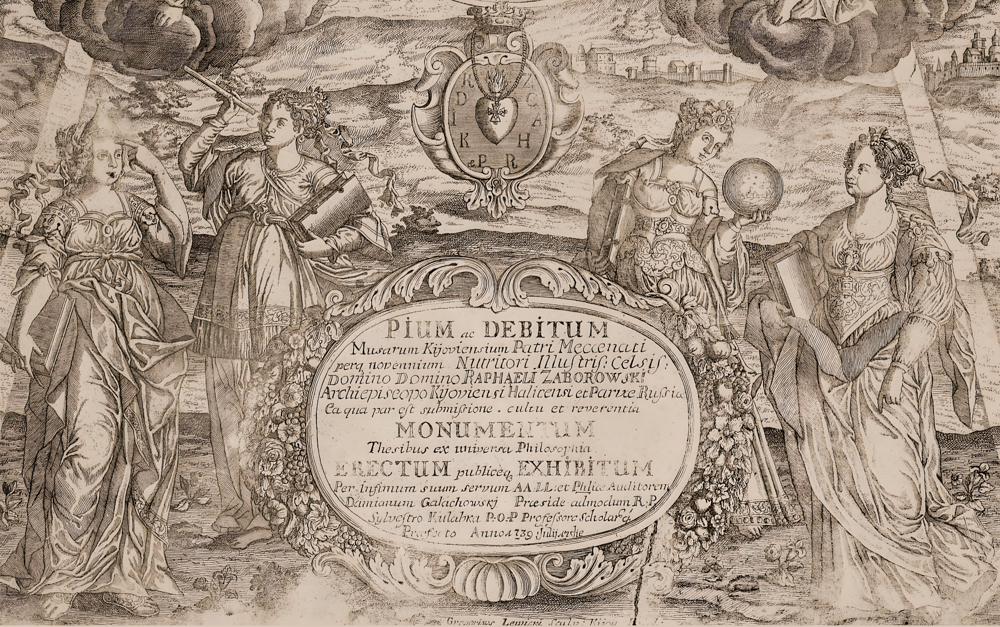 R C
D C
I A
K H
P R
PIUM ac DEBITUM
Musarum Kijoviensium Patri Mecænati
perq novennium Nutritori Illustris: Celsis:
Domino Domino RAPHAELI ZABOROWSKI
Archiepiscopo Kijoviensi Halicensi et Parvæ Russiæ
Ea qua par est submissione. cultu et reverentia
MONUMENTUM
Thesibus ex universa Philosophia
ERECTUM publiceq EXHIBITUM
Per Infimum suum servum AA.LL: et Philiæ Auditorem
Damianum Galachowskj Præside admodum R.P.
Sylvestro Kulabka P.O.P Professore Scholarq
Præfecto Anno 1739 Julij
Gregorius Sculp: Kijov